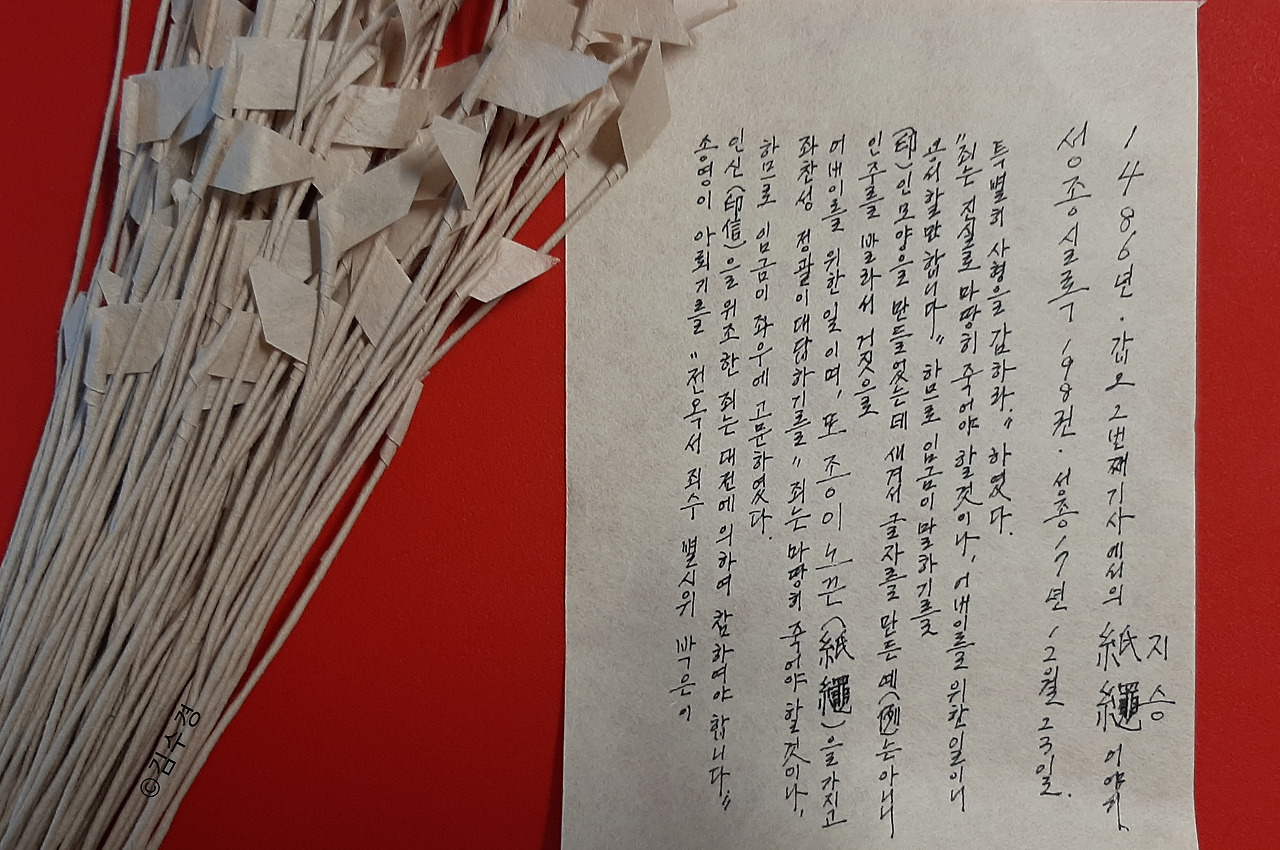 1486년·갑오 2번째기사에서의 紙繩 이야기.
지승
성종실록 198권·성종17년 12월 23일.
송영이 아뢰기를 "전옥서 죄수 별시위 박은이
인신(印信)을 위조한 죄는 대전에의하여 참하여야 합니다."
하므로 임금이 좌우에 고문하였다.
좌찬성 정괄이대답하기를 "죄는 마땅히 죽어야 할것이나,
어버이를 위한일이며, 또 종이노끈(紙繩)을가지고
인주를 발라서 거짓으로
(印)인모양을 만들었는데 새겨서 글자를 만든 예(例)는아니니
용서할만합니다." 하므로 임금이 말하기를
"죄는 진실로 마땅히 죽어야 할것이나, 어버이를 위한일이니
특별히 사형을 감하라." 하였다.
©김수경